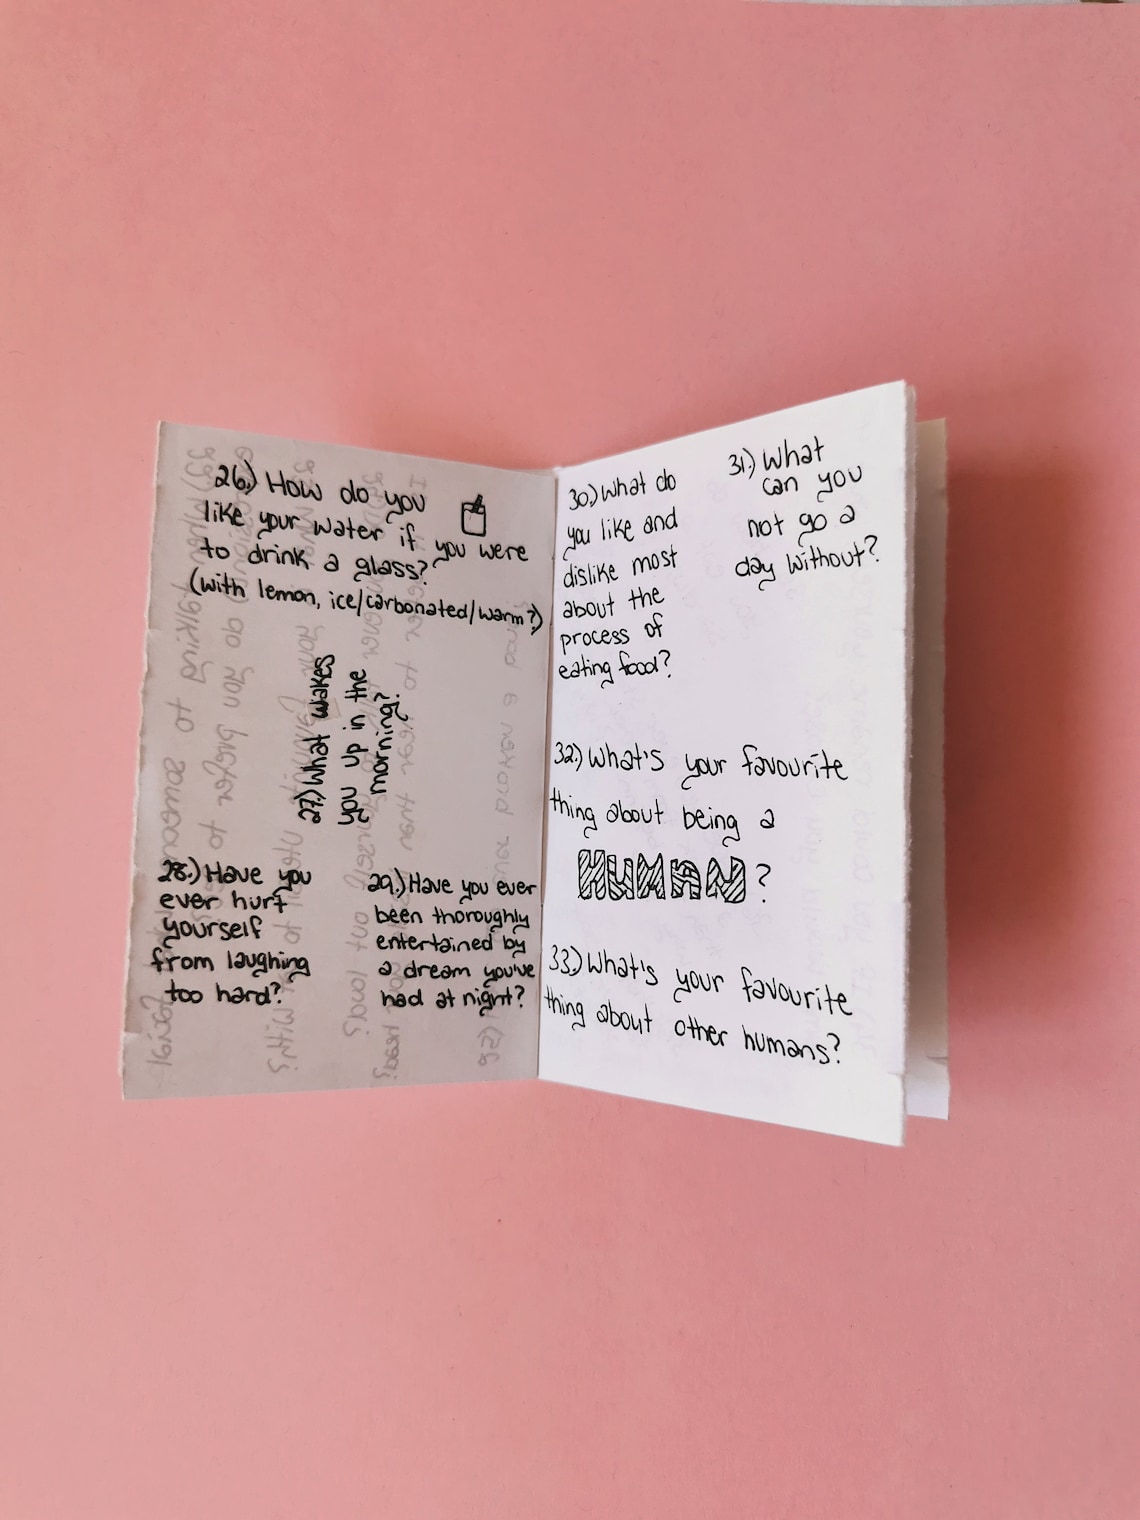 26.) How do you
like your water if you were
to drink a glass?
(with lemon, ice/carbonated/warm?)
27.) What wakes
you up in the
morning?
28.) Have you
ever hurt
yourself
from laughing
too hard?
29.) Have you ever
been thoroughly
entertained by
a dream you've
had at night?
30.) What do
you like and
dislike most
about the
process of
eating food?
31.) What
can you
not go a
day without?
32.) What's your favourite
thing about being a
HUMAN?
33.) What's your favourite
thing about other humans?